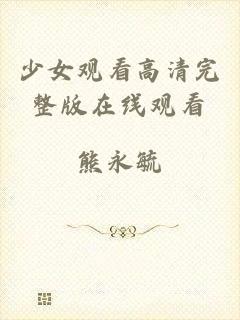 少女观看高清完
整版在线观看
熊永毓